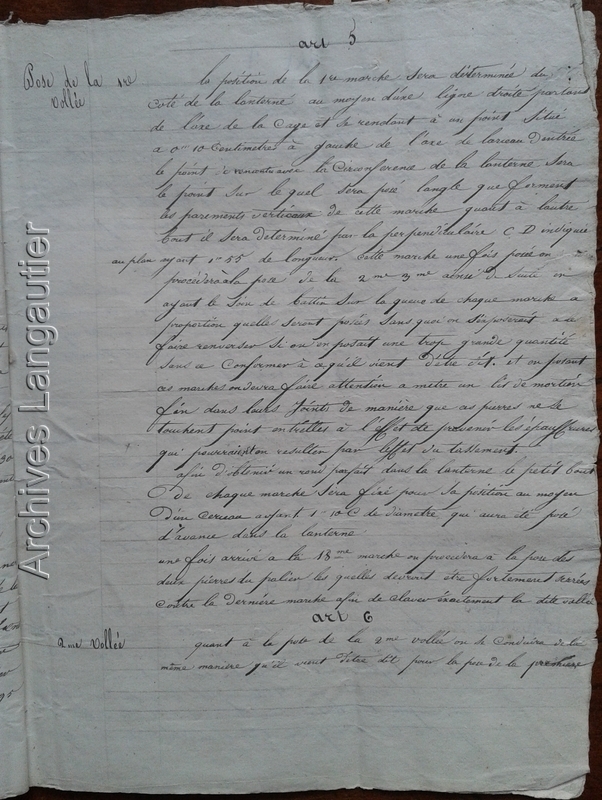 art 5
Pose de la 1re
Vollée
la position de la 1re marche sera déterminée du
Coté de la lanterne au moyen d'une ligne droite partant
de l'axe de la Cage et se rendant à un point Situé
a 0m 10 Centimetres à gauche de l'axe de larceau d'entrée
le point de rencontre avec la Circonference de la lanterne Sera
le point Sur le quel Sera posé langle que forment
les parements verticaux de cette marche quant à lautre
bout il Sera determiné par la perpendiculaire C D indiquée
au plan ayant 1m 55 de longueur. Cette marche une fois posée on
procedera à la pose de la 2me 3me ainsi de Suite en
ayant le Soin de battir Sur la queue de chaque marche a
proportion quelles Seront posées Sans quoi on S'exposerait a se
faire renverser Si on en posait une trop grande quantité
Sans se Conformer à ce qu'il vient d'être dit. et en posant
ces marches on devra faire attention a mètre un lit de mortier
fin dans leurs Joints de manière que ces pierres ne se
touchent point entr'elles à l'effet de prevenir les épauffrures
qui pourraient en resulter par l'effet du tassement.
afin d'obtenir un rond parfait dans la lanterne le petit bout
De chaque marche Sera fixé pour Sa position au moyen
D'un Cerceau ayant 1m 10 C de diamètre qui aura été posé
d'avance dans la lanterne
une fois arrivé a la 18me marche on procedera à la pose des
deux pierres du palier les quelles devront etre fortement serrées
Contre la Dernière marche afin de Claver exactement la dite vollée
art 6
2me Vollée
quant à la pose de la 2me Vollée on se Conduira de la
même manière qu'il vient d'être dit pour la pose de la première
Archives Langautier